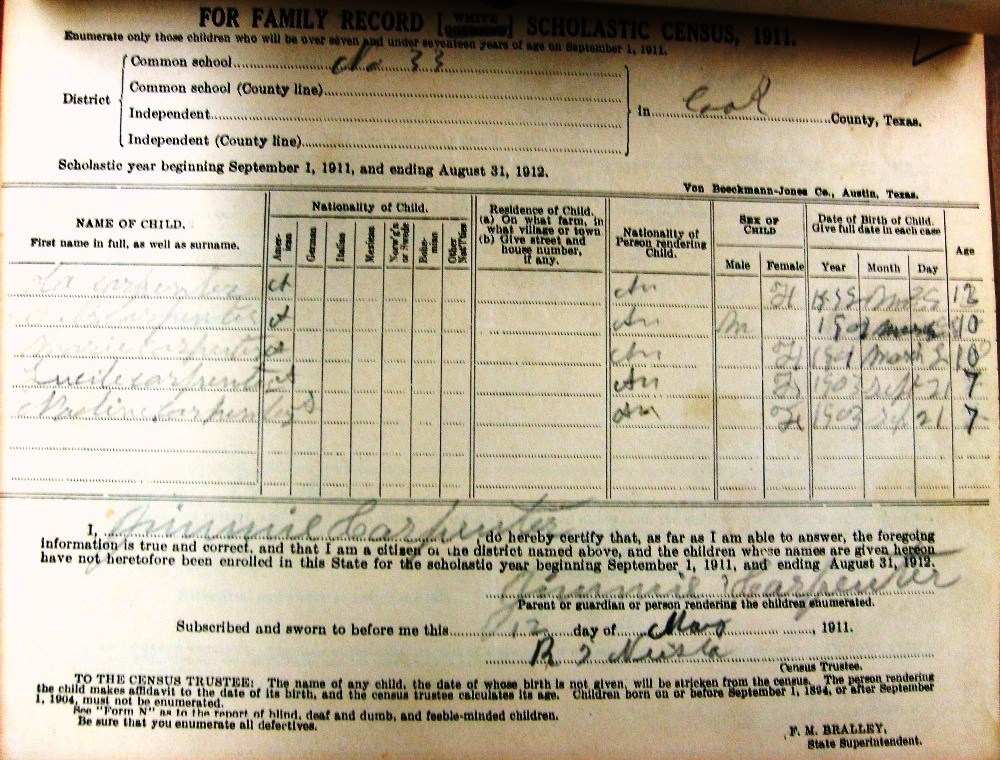 FOR FAMILY RECORD [WHITE COLORED] SCHOLASTIC CENSUS, 1911.
Enumerate only those children who will be over seven and under seventeen years of age on September 1, 1911.
Common school No 33
Common school (County line)
District
Independent
in Cook County, Texas.
Independent (County line)
Scholastic year beginning September 1, 1911, and ending August 31, 1912.
Von Boeckmann-Jones Co., Austin, Texas.
NAME OF CHILD.
First name in full, as well as surname.
Nationality of Child.
Amer- icans
German
Italian
Mexican
Norw'g'n or Swede
Bohe- mian
Other Nat'lties
Residence of Child.
(a) On what farm, in
what village or town
(b) Give street and
house number,
if any.
Nationality of
Person rendering
Child.
SEX OF
CHILD
Male Female
Date of Birth of Child.
Give full date in each case
Year Month Day
Age
carpenter A An F 1899 12
carpenter A An M 10
carpenter An F 1901 March 10
Lucile carpenter An F 1903 Sept 21 7
Carpenter An F 1903 Sept 21 7
I, Jimmie Carpenter, do hereby certify that, as far as I am able to answer, the foregoing
information is true and correct, and that I am a citizen of the district named above, and the children whose names are given hereon
have not heretofore been enrolled in this State for the scholastic year beginning September 1, 1911, and ending August 31, 1912.
Jimmie Carpenter
Parent or guardian or person rendering the children enumerated.
Subscribed and sworn to before me this 12 day of May, 1911.
R
Census Trustee.
TO THE CENSUS TRUSTEE: The name of any child, the date of whose birth is not given, will be stricken from the census. The person rendering
the child makes affidavit to the date of its birth, and the census trustee calculates its age. Children born on or before September 1, 1894, or after September
1, 1904, must not be enumerated.
See "Form N" as to the report of blind, deaf and dumb, and feeble-minded children.
Be sure that you enumerate all defectives.
F. M. BRALLEY,
State Superintendent.